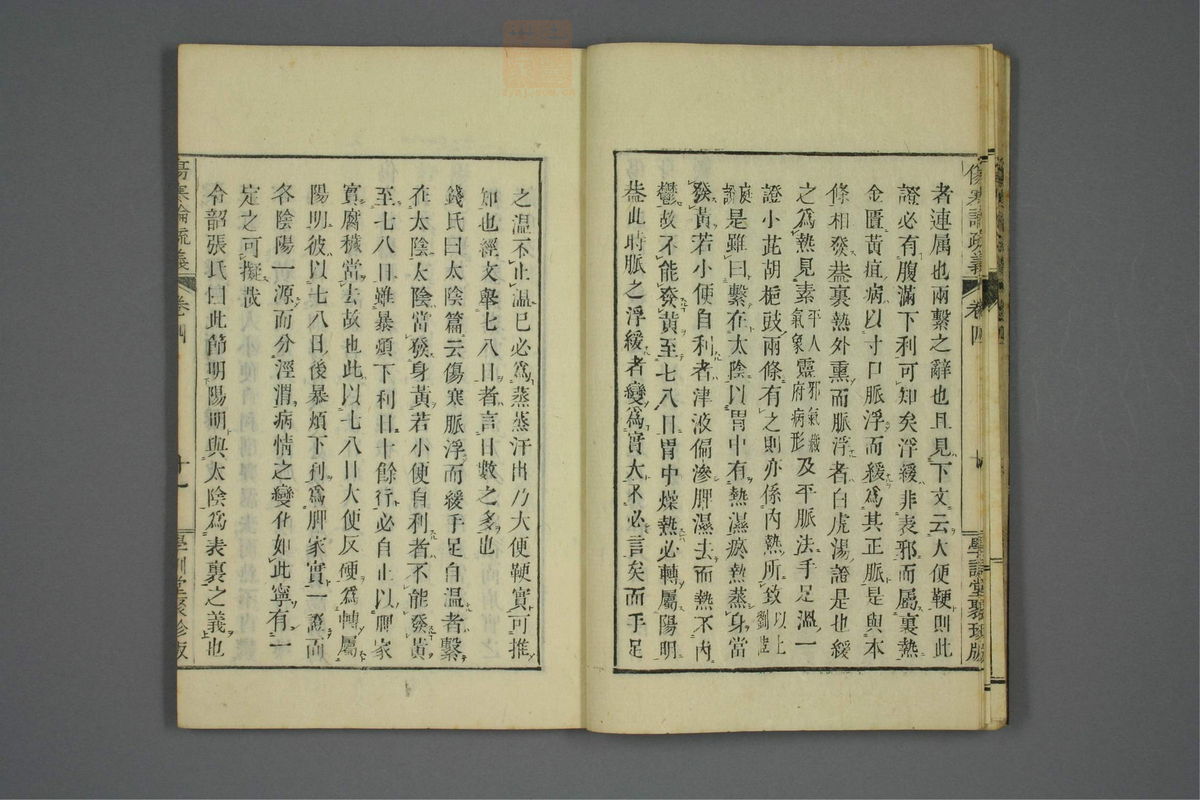 傷寒論疏義 卷四 十 學訓堂聚珍版
者連属也兩繫之辭也且見下文云大便鞕則此
證必有腹滿下利可知矣浮緩非表邪而屬裏熱
金匱黃疸病以寸口脈浮而緩爲其正脈是與本
條相發葢裏熱外熏而脈浮者白虎湯證是也緩
之爲熱見素平人氣象靈邪氣藏府病形及平脈法手足溫一
證小茈胡梔豉兩條有之則亦係內熱所致以上劉茝
庭說是雖曰繫在太陰以胃中有熱濕瘀熱蒸身當
發黃若小便自利者津液偏滲脾濕去而熱不內
鬱故不能發黃至七八日胃中燥熱必轉屬陽明
葢此時脈之浮緩者變爲實大不必言矣而手足
之溫不止溫已必爲蒸蒸汗出乃大便鞕實可推
知也經文舉七八日者言日數之多也
錢氏曰太陰篇云傷寒脈浮而緩手足自溫者繫
在太陰太陰當發身黃若小便自利者不能發黃
至七八日雖暴煩下利日十餘行必自止以脾家
實腐穢當去故也此以七八日大便反硬爲轉屬
陽明彼以七八日後暴煩下利爲脾家實一證而
各陰陽一源而分涇渭病情之變化如此寧有一
定之可擬哉
令韶張氏曰此節明陽明與太陰爲表裏之義也
傷寒論疏義 卷四 十一 學訓堂聚珍版